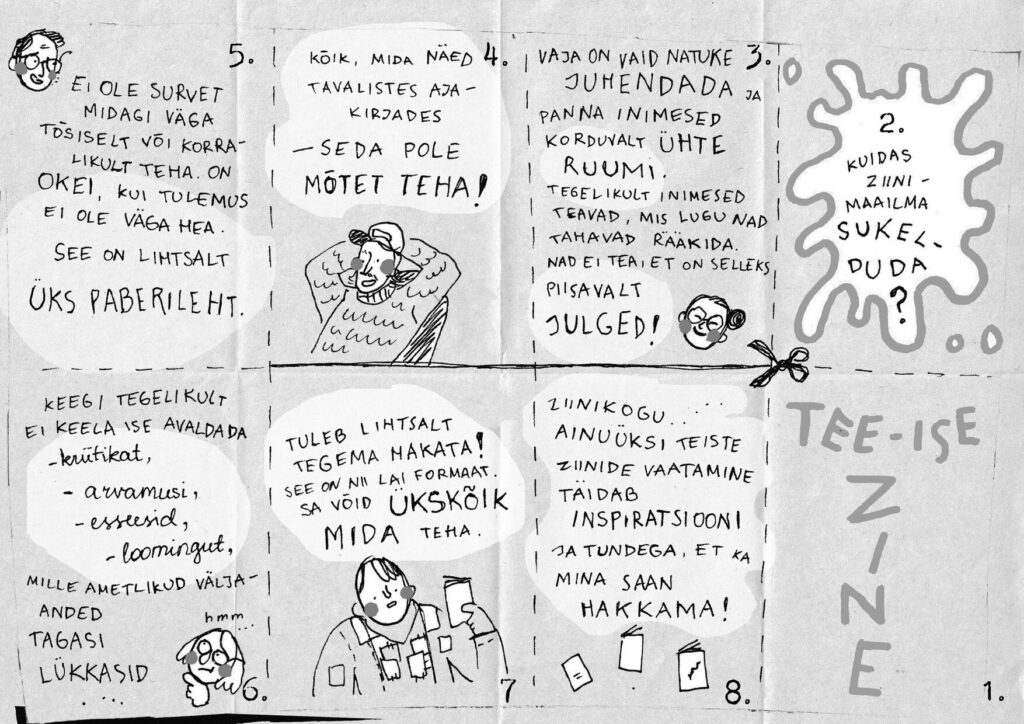 5.
EI OLE SURVET
MIDAGI VÄGA
TÕSISELT VÕI KORRA-
LIKULT TEHA. ON
OKEI, KUI TULEMUS
EI OLE VÄGA HEA.
SEE ON LIHTSALT
ÜKS PABERILEHT.
4.
KÕIK, MIDA NÄED
TAVALISTES AJA-
KIRJADES
—SEDA POLE
MÕTET TEHA!
3.
VAJA ON VAID NATUKE
JUHENDADA JA
PANNA INIMESED
KORDUVALT ÜHTE
RUUMI.
TEGELIKULT INIMESED
TEAVAD, MIS LUGU NAD
TAHAVAD RÄÄKIDA.
NAD EI TEA, ET ON SELLEKS
PIISAVALT
JULGED!
2.
KUIDAS
ZIINI-
MAAILMA
SUKEL-
DUDA
?
KEEGI TEGELIKULT
EI KEELA ISE AVALDADA
-kriitikat,
- arvamusi,
- esseesid,
- loomingut,
MILLE AMETLIKUD VÄLJA-
ANDED
TAGASI
LÜKKASID
....
hmm...
6.
TULEB LIHTSALT
TEGEMA HAKATA!
SEE ON NII LAI FORMAAT.
SA VÕID ÜKSKÕIK
MIDA TEHA.
7
ZIINIKOGU.....
AINUÜKSI TEISTE
ZIINIDE VAATAMINE
TÄIDAB
INSPIRATSIOONI
JA TUNDEGA, ET KA
MINA SAAN
HAKKAMA!
8.
TEE-ISE
ZINE
1.